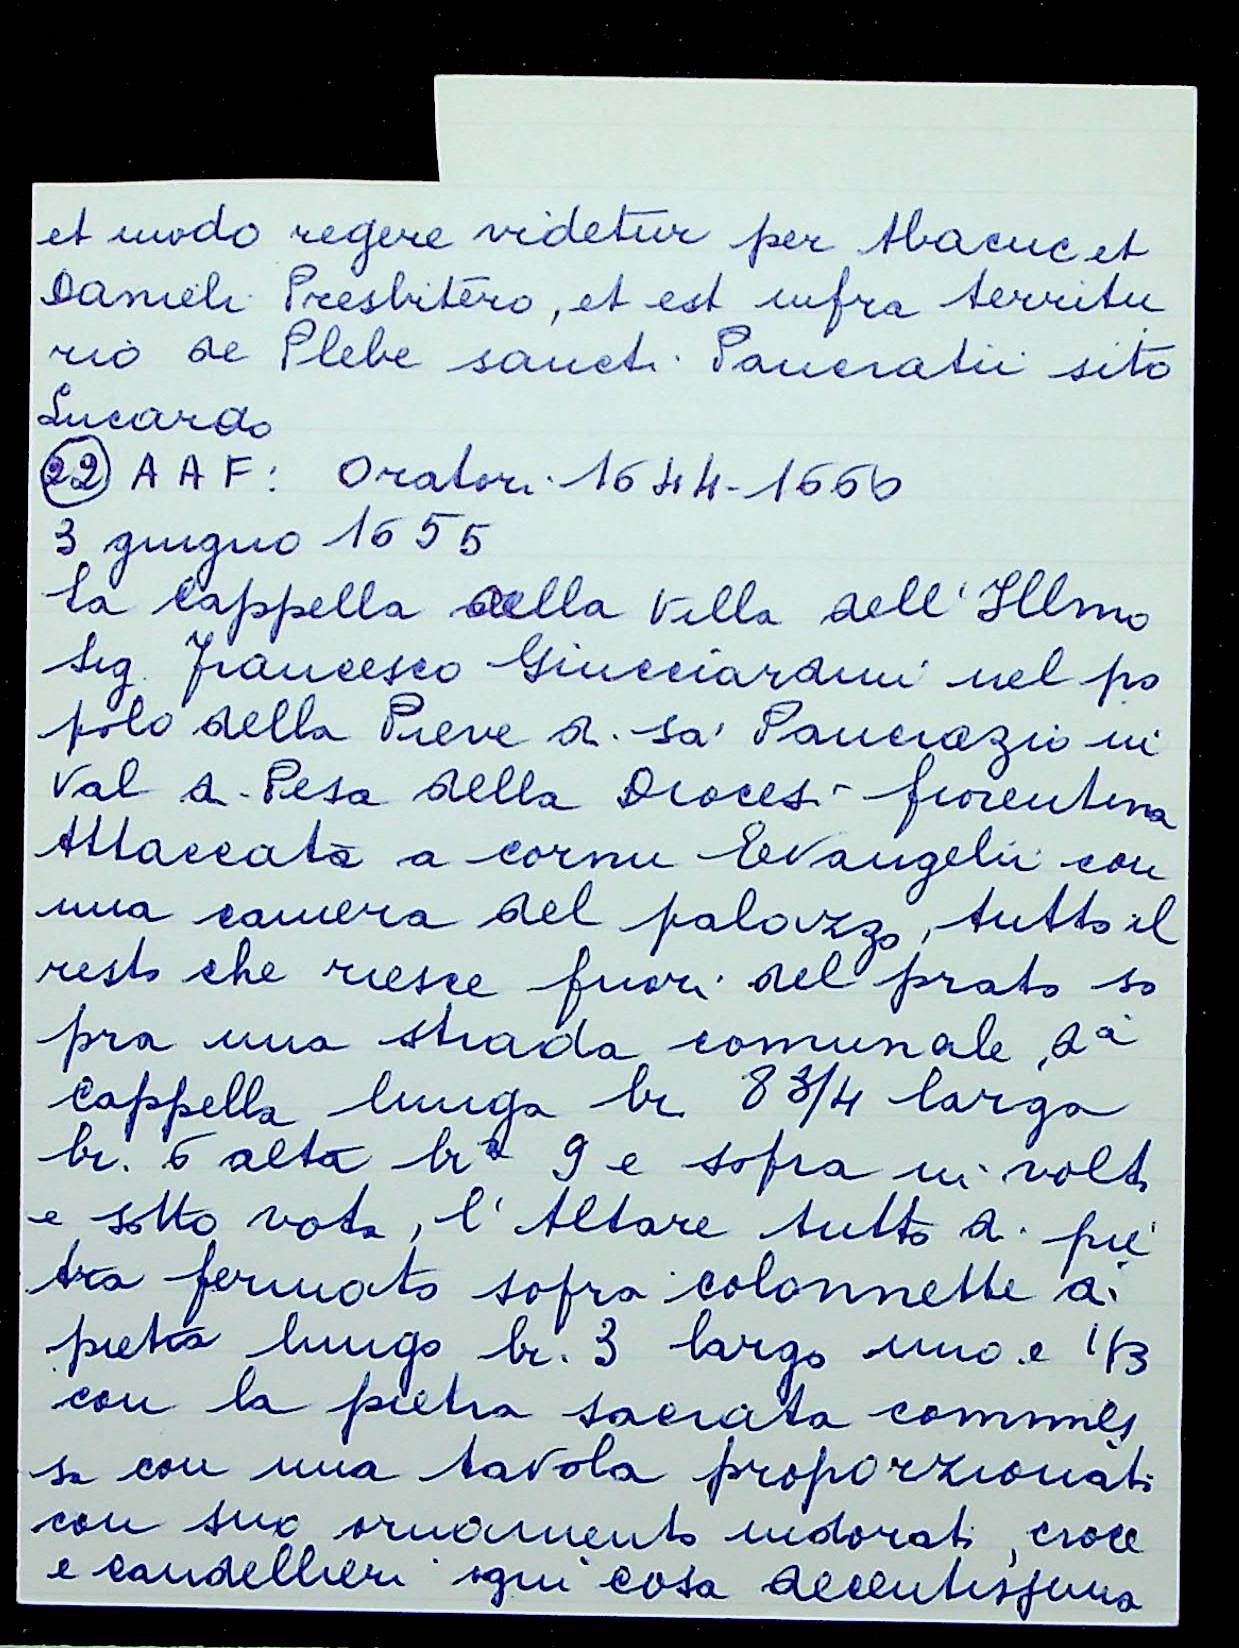 et modo regere videtur per Abacuc et
Danieli Presbitero, et est infra territu
rio de Plebe sancti Pancratii sito
Lucardo
22 A A F: Oratori 1644-1666
3 giugno 1655
La Cappella della Villa dell'Illmo
Sig. Francesco Giucciardini nel po
polo della Pieve di Sa' Pancrazio in
Val di Pesa della Diocesi fiorentina
Attaccata a cornu Evangelii con
una camera del palazzo, tutto il
resto che riesce fuori del prato so
pra una strada comunale, da
cappella lunga br. 8 3/4 larga
br. 6 alta bra 9 e sopra in volti
e sotto vota, l'Altare tutto di pie
tra fermato sopra colonnette di
pietra lungo br. 3 largo uno e 1/3
con la pietra sacrata commes
sa con una tavola proporzionati
con suo ornamento indorati, croce
e candellieri ogni cosa decentissima